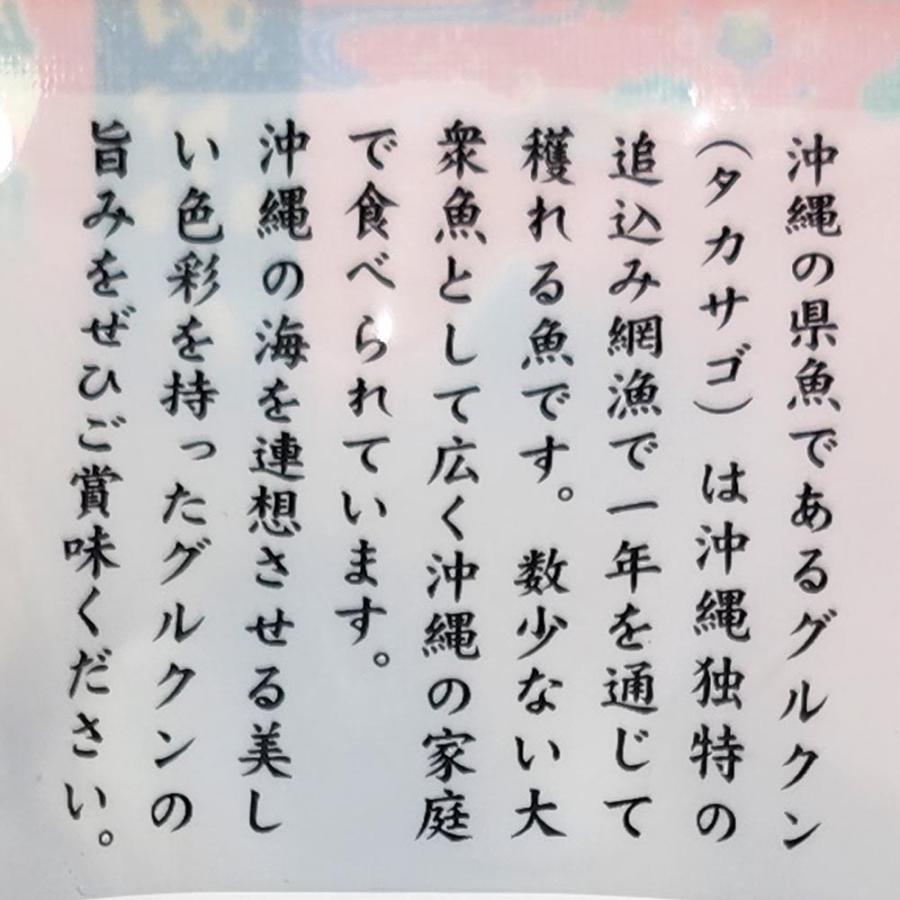 沖縄の県魚であるグルクン
（タカサゴ）は沖縄独特の
追込み網漁で一年を通じて
穫れる魚です。数少ない大
衆魚として広く沖縄の家庭
で食べられています。
沖縄の海を連想させる美し
い色彩を持ったグルクンの
旨みをぜひご賞味ください。